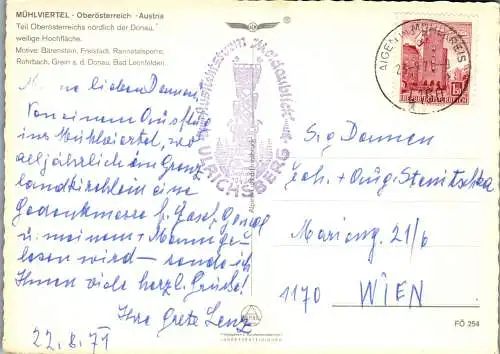 MÜHLVIERTEL - Oberösterreich - Austria
Teil Oberösterreichs nördlich der Donau,
wellige Hochfläche.
Motive: Bärenstein, Freistadt, Rannatalsperre,
Rohrbach, Grein a. d. Donau, Bad Leonfelden.
lieben Damen!
Von einem Ausflug
ins Mühlviertel, wo
alljährlich im Grenz-
landkirchlein eine
Gedenkmesse f. Josef
u. meinem Mann ge-
lesen wird — sende ich
Ihnen viele herzl. Grüße!
Ihre Grete Lenz
22.8.71
Aussichtsturm "Moldaublick"
ULRICHSBERG
AIGEN im MÜHLKREIS
4160
1.50
REPUBLIK ÖSTERREICH
S.g. Damen
Joh. + Aug. Stemitschka
Marieng. 21/6
1170 WIEN
FÖ 254